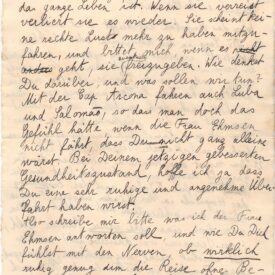 das ganze Leben ist. Wenn sie verreist
verliert sie es wieder. Sie scheint kei-
ne rechte Lust mehr zu haben mitzu-
fahren, und bittet mich, wenn es
geht, sie freizugeben. Wie denkst
Du darüber, und was sollen wir tun?
Mit der Cap Arcona fahren auch Luba
und Salomão, so dass man doch das
Gefühl hätte wenn die Frau Ehmsen
nicht fährt, dass Du nicht ganz alleine
wärst. Bei Deinem jetzigen gebesserten
Gesundheitszustand, hoffe ich ja dass
Du eine sehr ruhige und angenehme Über-
fahrt haben wirst.
Also schreibe mir bitte was ich der Frau
Ehmsen antworten soll und wie Du Dich
fühlst mit den Nerven, ob wirklich
ruhig genug um die Reise ohne Be-